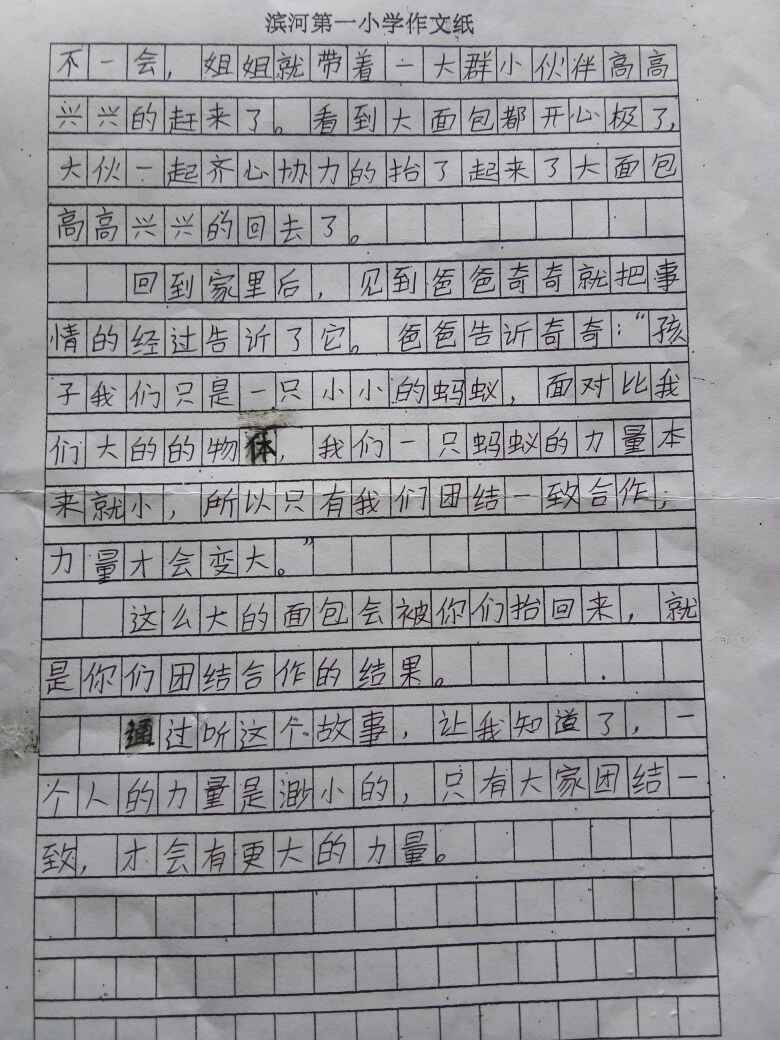 滨河第一小学作文纸
不一会，姐姐就带着一大群小伙伴高高
兴兴的赶来了。看到大面包都开心极了，
大伙一起齐心协力的抬了起来了大面包
高高兴兴的回去了。
回到家里后，见到爸爸奇奇就把事
情的经过告诉了它。爸爸告诉奇奇：“孩
子我们只是一只小小的蚂蚁，面对比我
们大的的物体，我们一只蚂蚁的力量本
来就小，所以只有我们团结一致合作，
力量才会变大。”
这么大的面包会被你们抬回来，就
是你们团结合作的结果。
通过听这个故事，让我知道了，一
个人的力量是渺小的，只有大家团结一
致，才会有更大的力量。